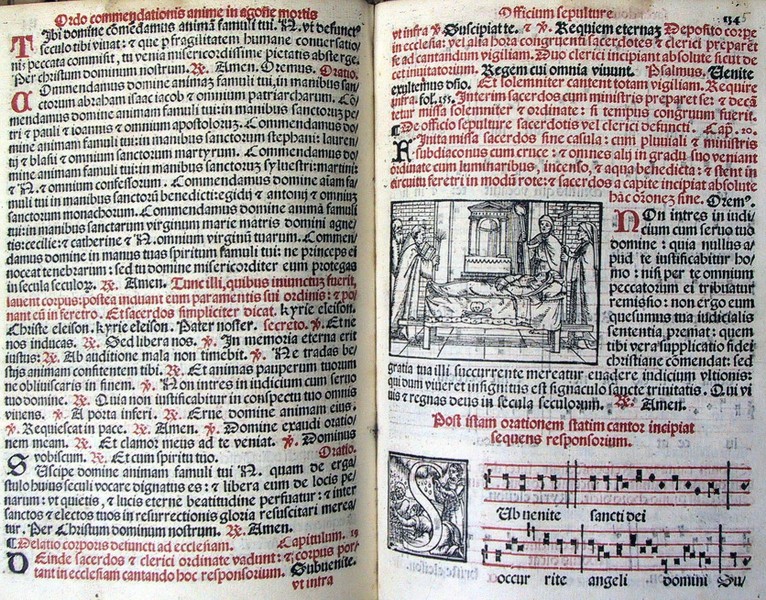 Ordo commendationis anime in agone mortis
Tibi domine comēdamus animā famuli tui. N. vt defunctꝰ
seculo tibi viuat: & que ꝑ fragilitatem humane conuersatio/
nis peccata commisit, tu venia misericordissime pietatis absterge.
Per christum dominum nostrum. ℟. Amen. Oremus. Oratio.
Commendamus domine animaʒ famuli tui, in manibus san/
ctorum abraham isaac iacob & omnium patriarcharum. Cō/
mendamus domine animam famuli tui: in manibus sanctorūʒ pe/
tri & pauli & ioannis & omnium apostolorūʒ. Commendamus do/
mine animam famuli tui: in manibus sanctorum stephani: lauren/
tij & blasii & omnium sanctorum martyrum. Commendamus do/
mine animam famuli tui: in manibus sanctorūʒ syluestri: martini:
& N. & omnium confessorum. Commendamus domine aīam fa/
muli tui in manibus sanctorū benedicti: egidij & antonij & omniuʒ
sanctorum monachorum. Commendamus domine animā famuli
tui: in manibus sanctarum virginum marie matris domini agne/
tis: cecilie: & catherine & N. omnium virginū tuarum. Commen/
damus domine in manus tuas spiritum famuli tui: ne princeps ei
noceat tenebrarum: sed tu domine misericorditer eum protegas
in secula seculoꝝ. ℟. Amen. Tunc illi, quibus iniunctuʒ fuerit,
lauent corpus: postea induant eum paramentis sui ordinis: & po/
nant eū in feretro. Et sacerdos simpliciter dicat. kyrie eleison.
Christe eleison. kyrie eleison. Pater noster. secreto. ℣. Et ne
nos inducas. ℟. Sed libera nos. ℣. In memoria eterna erit
iustus: ℟. Ab auditione mala non timebit. ℣. Ne tradas be/
stijs animam confitentem tibi. ℟. Et animas pauperum tuorum
ne obliuiscaris in finem. ℣. Non intres in iudicium cum seruo
tuo domine. ℟. Quia non iustificabitur in conspectu tuo omnis
viuens. ℣. A porta inferi. ℟. Erue domine animam eius.
℣. Requiescat in pace. ℟. Amen. ℣. Domine exaudi oratio/
nem meam. ℟. Et clamor meus ad te veniat. ℣. Dominus
vobiscum. ℟. Et cum spiritu tuo. Oratio.
Suscipe domine animam famuli tui N. quam de erga/
stulo huius seculi vocare dignatus es: & libera eum de locis pe/
narum: vt quietis, & lucis eterne beatitudine perfruatur: & inter
sanctos & electos tuos in resurrectionis gloria resuscitari merea/
tur. Per Christum dominum nostrum. ℟. Amen.
Delatio corporis defuncti ad ecclesiam. Capitulum. 19
Deinde sacerdos & clerici ordinate vadunt: & corpus por/
tant in ecclesiam cantando hoc responsorium. Subuenite.
vt infra
Officium sepulture 134
vt infra ℣ Suscipiat te. & ℣. Requiem eternaʒ Deposito corpe
in ecclesia: vel alta hora congruenti sacerdotes & clerici preparēt
se ad cantandum vigiliam. Duo clerici incipiant absolute sicut de
cet inuitatorium. Regem cui omnia viuunt. Psalmus. Uenite
exultemus dño. Et solemniter cantent totam vigiliam. Require
infra. fol. Interim sacerdos cum ministris preparet se: & decā
tetur missa solemniter & ordinate: si tempus congruum fuerit.
De officio sepulture sacerdotis vel clerici defuncti. Cap. 20.
Finita missa sacerdos sine casula: cum pluuiali & ministris
subdiaconus cum cruce: & omnes alij in gradu suo veniant
ordinate cum luminaribus, incenso, & aqua benedicta: & stent in
circuitu feretri in modū rote: & sacerdos a capite incipiat absolute
hāc oronez sine. Oremꝰ.
Non intres in iudi/
cium cum seruo tuo
domine: quia nullus a/
pud te iustificabitur ho/
mo: nisi per te omnium
peccatorum ei tribuatur
remissio: non ergo eum
quesumus tua iudicialis
sententia premat: quem
tibi vera supplicatio fidei
christiane cōmendat: sed
gratia tua illi succurrente mereatur euadere iudicium vltionis:
qui dum viueret insignitus est signaculo sancte trinitatis. Qui vi
uis & regnas deus in secula seculorum. ℟. Amen.
Post istam orationem statim cantor incipiat
sequens responsorium.
SUb uenite sancti dei
occur rite angeli domini Su/